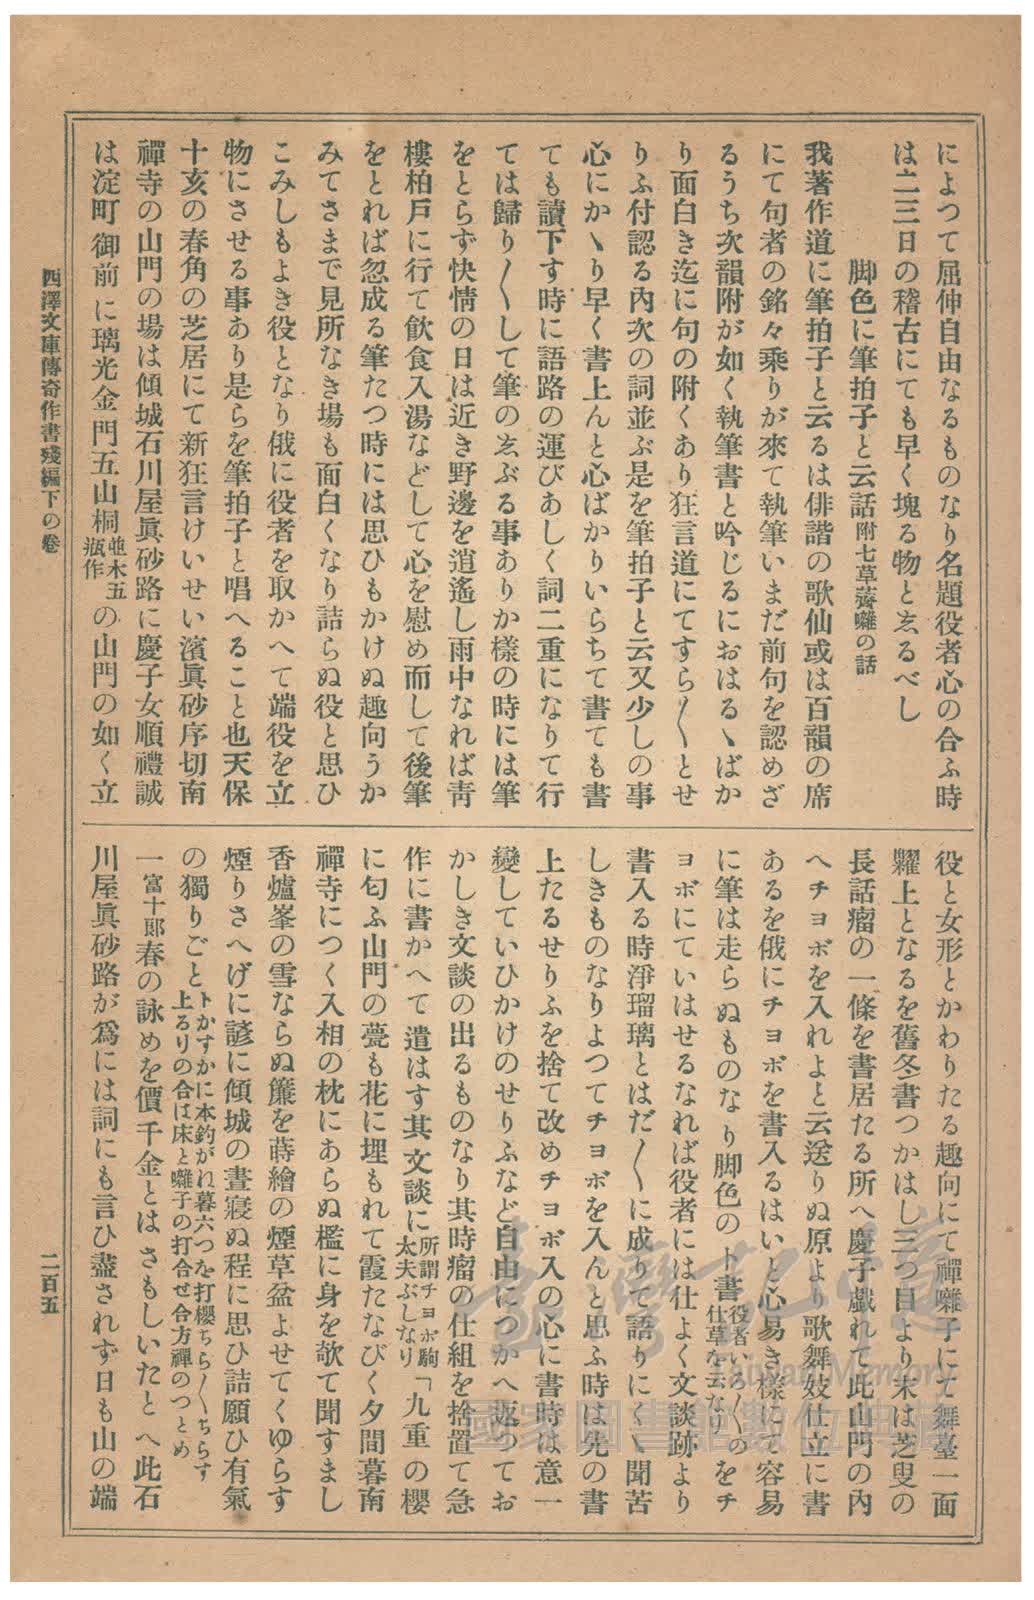 によつて屈伸自由なるものなり名題役者心の合ふ時
は二三日の稽古にても早く塊る物と志るべし
脚色に筆拍子と云話附七草薺囃の話
我著作道に筆拍子と云るは俳諧の歌仙或は百韻の席
にて句者の銘々乘りが來て執筆いまだ前句を認めざ
るうち次韻附が如く執筆書と吟じるにおはるゝばか
り面白き迄に句の附くあり狂言道にてすら〳〵とせ
りふ付認る內次の詞並ぶ是を筆拍子と云又少しの事
心にかゝり早く書上んと心ばかりいらちて書ても書
ても讀下す時に語路の運びあしく詞二重になりて行
ては歸り〳〵して筆の志ぶる事ありか樣の時には筆
をとらず快情の日は近き野邊を逍遙し雨中なれば靑
樓柏戸に行て飮食入湯などして心を慰め而して後筆
をとれば忽成る筆たつ時には思ひもかけぬ趣向うか
みてさまで見所なき場も面白くなり詰らぬ役と思ひ
こみしもよき役となり俄に役者を取かへて端役を立
物にさせる事あり是らを筆拍子と唱へること也天保
十亥の春角の芝居にて新狂言けいせい濱眞砂序切南
禪寺の山門の場は傾城石川屋眞砂路に慶子女順禮誠
は淀町御前に璃光金門五山桐並木五瓶作の山門の如く立
役と女形とかわりたる趣向にて禪囃子にて舞臺一面
糶上となるを舊冬書つかはし三つ目より末は芝叟の
長話瘤の一條を書居たる所へ慶子戯れて此山門の內
へチヨボを入れよと云送りぬ原より歌舞妓仕立に書
あるを俄にチヨボを書入るはいと心易き樣にて容易
に筆は走らぬものなり脚色のト書役者いろ〳〵の仕草を云なりをチ
ヨボにていはせるなれば役者には仕よく文談跡より
書入る時淨瑠璃とはだ〳〵に成りて語りにくゝ聞苦
しきものなりよつてチヨボを入んと思ふ時は先の書
上たるせりふを捨て改めチヨボ入の心に書時は意一
變していひかけのせりふなど自由につかへ返つてお
かしき文談の出るものなり其時瘤の仕組を捨置て急
作に書かへて遣はす其文談に所謂チヨボ駒太夫ぶしなり「九重の櫻
に匂ふ山門の甍も花に埋もれて霞たなびく夕間暮南
禪寺につく入相の枕にあらぬ檻に身を欹て聞すまし
香爐峯の雪ならぬ簾を蒔繪の煙草盆よせてくゆらす
煙りさへげに諺に傾城の晝寢ぬ程に思ひ詰願ひ有氣
の獨りごとトかすかに本釣がね暮六つを打櫻ちら〳〵ちらす上るりの合は床と囃子の打合せ合方禪のつとめ
一富十郞春の詠めを價千金とはさもしいたとへ此石
川屋眞砂路が爲には詞にも言ひ盡されず日も山の端
西澤文庫傳奇作書殘編下の卷
二百五
臺灣記憶
Taiwan Memory
國家圖書館數位典藏